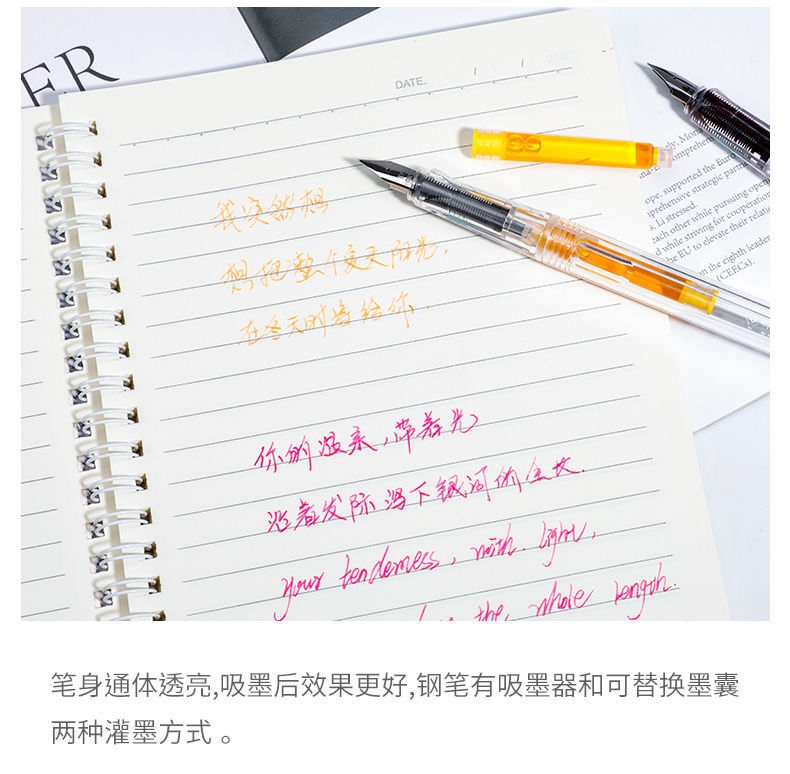 ER
DATE. / /
STAG
我突然想
想把整个夏天阳光,
在冬天时寄给你.
你的温柔,带着光
沿着发际淌下银河的全长.
your tenderness, with light,
the, whole length.
ly, Mon
comprehen
ope, supported the Euro
prehensive strategic partn
s, Li stressed.
each other while pursuing open
d while striving for cooperation
he EU to elevate their relatio
on the eighth leader
(CEECs).
笔身通体透亮,吸墨后效果更好,钢笔有吸墨器和可替换墨囊
两种灌墨方式。